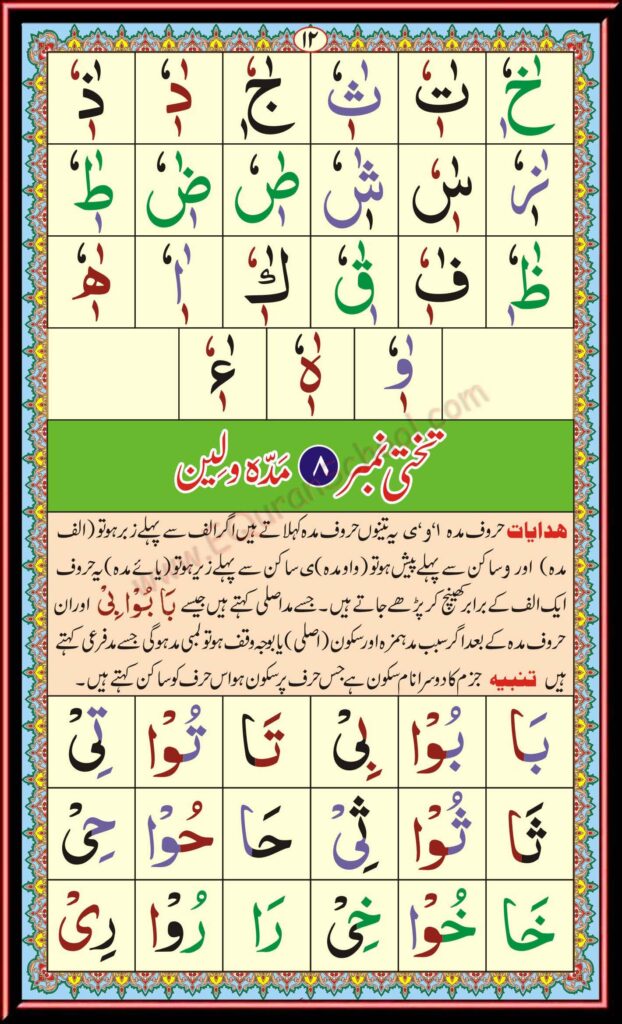 ١٢
خٰٖٗ تٰٖٗ ثٰٖٗ جٰٖٗ دٰٖٗ ذٰٖٗ
زٰٖٗ سٰٖٗ شٰٖٗ صٰٖٗ ضٰٖٗ طٰٖٗ
ظٰٖٗ فٰٖٗ قٰٖٗ كٰٖٗ اٰٖٗ هٰٖٗ
وٰٖٗ ہٰٖٗ ءٰٖٗ
تختی نمبر ٨ مَدّہ و لِین
ھدایات حروف مدہ ا، و، ی یہ تینوں حروف مدہ کہلاتے ہیں اگر الف سے پہلے زبر ہو تو (الف
مدہ) اور و ساکن سے پہلے پیش ہو تو (واو مدہ) ی ساکن سے پہلے زیر ہو تو (یائے مدہ) یہ حروف
ایک الف کے برابر کھینچ کر پڑھے جاتے ہیں۔ جسے مد اصلی کہتے ہیں جیسے بَا بُوْا بِیْ اور ان
حروف مدہ کے بعد اگر سبب مد ہمزہ اور سکون (اصلی) یا بوجہ وقف ہو تو لمبی مد ہوگی جسے مد فرعی کہتے
ہیں تنبیه جزم کا دوسرا نام سکون ہے جس حرف پر سکون ہو اس حرف کو ساکن کہتے ہیں۔
بَا بُوْا بِیْ تَا تُوْا تِیْ
ثَا ثُوْا ثِیْ حَا حُوْا حِیْ
خَا خُوْا خِیْ رَا رُوْا رِیْ